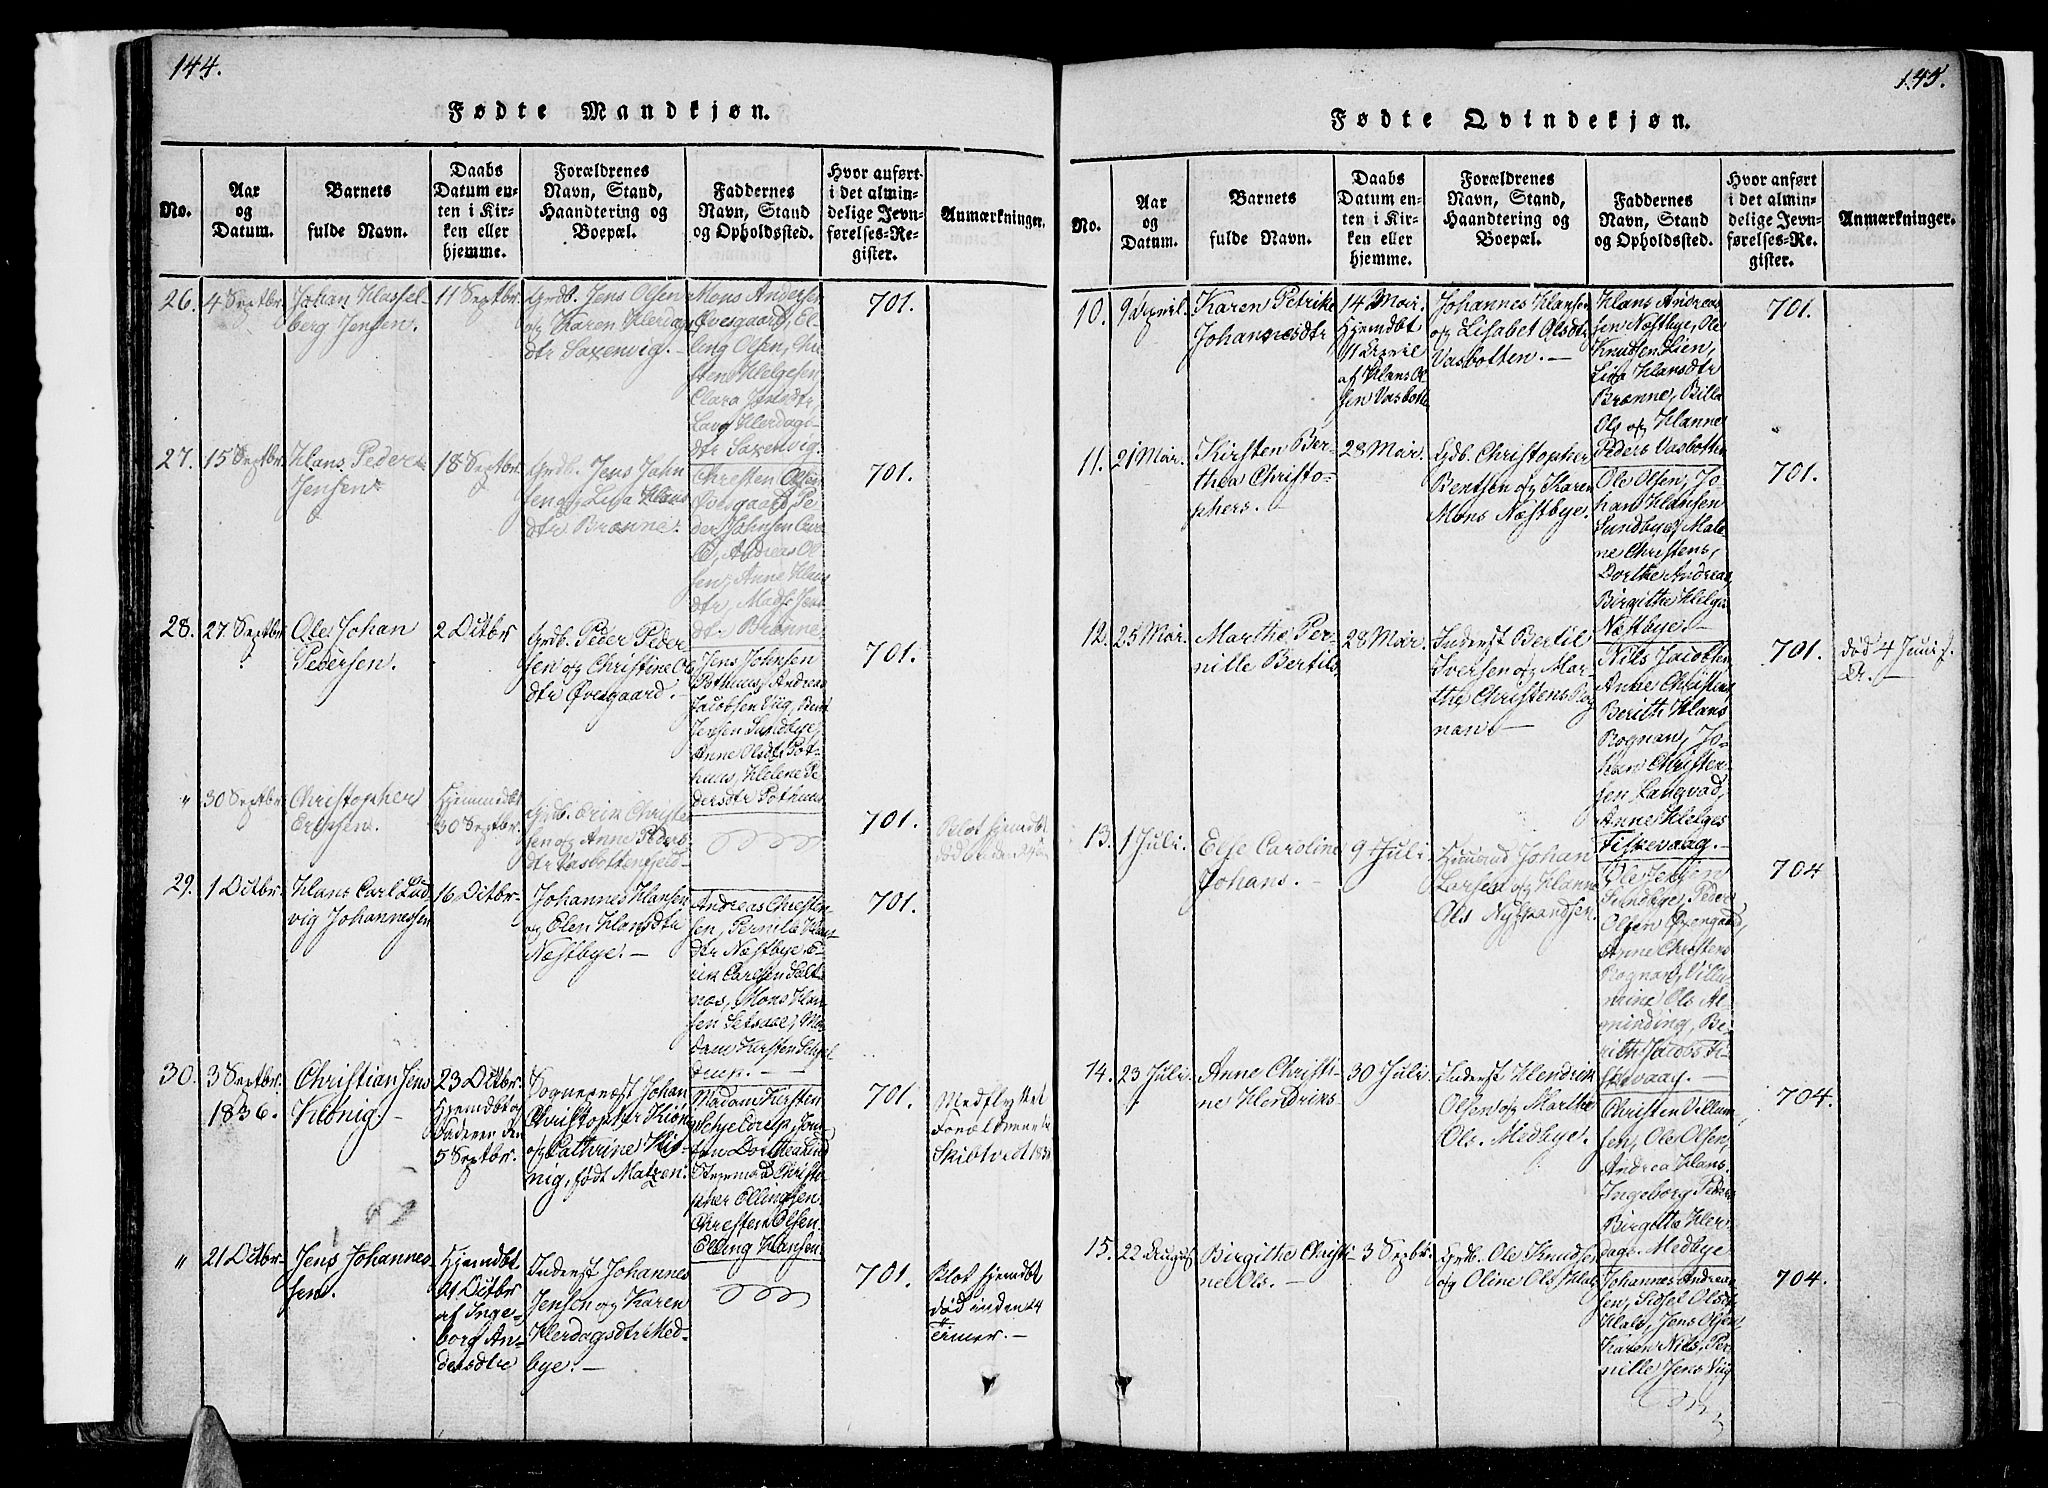 144.
Fødte Mandkjøn.
No.
Aar
og
Datum.
Barnets
fulde Navn.
Daabs
Datum en-
ten i Kir-
ken eller
hjemme.
Forældrenes
Navn, Stand,
Haandtering og
Boepæl.
Faddernes
Navn, Stand
og Opholdssted.
Hvor anført
i det almin-
delige Jevn-
førelses-Re-
gister.
Anmærkninger.
26.
4 Septbr.
Johan Hassel-
berg Jensen.
11 Septbr.
Grdb. Jens Olsen
og Karen Herdags
dtr Saxenvig.
Mons Andersen
Øvesgaard, El-
ling Olsen, Chri-
sten Helgesen,
Clara Jensdtr,
Lava Herdags-
dtr Saxenvig.
701.
27.
15 Septbr.
Hans Peder
Jensen
18 Septbr.
Grdb. Jens John
sen og Lisa Hans
dtr Brønne.
Chresten Olsen
Øvesgaard, Pe-
der Johnsen
Andreas Ol-
sen, Anne Hans
dtr, Mads Jens
dtr. Brønne.
701.
28.
27 Septbr
Ole Johan
Pedersen.
2 Octbr
Grdb. Peder Peder
sen og Christine Ols
dtr Øvesgaard.
Jens Johnsen
Pothuus, Andreas
Jacobsen Viig,
Jensen Sundbye,
Anne Olsdtr Pot-
huus, Helene Pe-
dersdtr Pothuus
701.
"
30 Septbr
Christopher
Ericsen.
Hjemmedbt
30 Septbr.
Grdb. Erik Christen
sen og Anne Peders
dtr Vasbottenfjeld
701.
Blot hjemdbt
29.
1 Octbr.
Hans Carl Lud
vig Johannessen
16 Octbr.
Johannes Hansen
og Elen Hansdtr
Næstbye.
Andreas Chresten-
sen, Pernille Hans
dtr Næstbye, E-
rik Carlsen Salt-
næs, Mons Han-
sen Setsaae, Ma-
dam Kirsten Schjel
701.
30.
3 Septbr.
1836.
Christian Jens
König.
23 Octbr.
Hjemdbt af
Faderen den
5 Septbr.
Sognepræst Johan
Christopher König
og Cathrine Kö-
nig, født Matzen.
Madam Kirsten
Schjelderup, Jom-
fru Dorthea Lind
Christo-
pher Ellingsen
Chresten Olsen
Elling Hansen.
701.
Medflyttet
Forældrene til
Skibtvedt
"
21 Octbr
Jens Johannes
sen.
Hjemdbt
21 Octbr
af Inge-
borg An-
dersdtr
Inderst Johannes
Jensen og Karen
Herdagsdtr Med-
bye.
701.
Blot hjemdbt
død inden 24
Timer.
145.
Fødte Qvindekjøn.
No.
Aar
og
Datum.
Barnets
fulde Navn.
Daabs
Datum en-
ten i Kir-
ken eller
hjemme.
Forældrenes
Navn, Stand,
Haandtering og
Boepæl.
Faddernes
Navn, Stand
og Opholdssted.
Hvor anført
i det almin-
delige Jevn-
førelses-Re-
gister.
Anmærkninger.
10.
9 April.
Karen Petrike
Johannesdtr
14 Mai.
Hjemdbt
11 April
af Hans Ol
sen Vasbotten
Johannes Hansen
og Lisabet Olsdtr
Vasbotten.
Hans Andreas
sen Næstbye, Ole
Knutsen Lien,
Lisa Hansdtr
Brønne, Billa
Ols og Hanne
Peders Vasbotten
701.
11.
21 Mai.
Kirsten Ber-
thea Christo-
phers.
28 Mai.
Grdb. Christopher
Bentsen og Karen
Mons Næstbye.
Ole Olsen, Jo-
han Hansen
Sundbye, Male-
ne Christens,
Dorthe Andreas,
Birgitha Helges
Næstbye.
701.
12.
25 Mai.
Marthe Per-
nille Bertils.
28 Mai.
Inderst Bertil
Iversen og Mar-
the Christens Rog
nan.
Nils Jacobsen
Anne Christens,
Berith Hans
Rognan, Jo-
han Christen-
sen Langvad,
Anne Helges
Fiskevaag.
701.
død 4 Juni s.
A.
13.
1 Juli.
Else Caroline
Johans.
9 Juli.
Huusmd Johan
Larsen og Hanne
Ols Nystrandsen.
Ole Jensen
Sundbye, Peder
Olsen Øxengaard,
Anne Christens
Rognan, Villu-
mine Ols Al-
minding, Be-
rith Jacobs Fi-
skevaag.
704
14.
23 Juli.
Anne Christi-
ne Hendriks
30 Juli.
Inderst Hendrik
Olsen og Marthe
Ols. Medbye.
Christen Villum
sen, Ole Olsen,
Andrea Hans.
Ingeborg Peders
Birgitta Her-
dags. Medbye
704.
15.
22 August
Birgithe Christi-
ne Ols.
3 Septbr.
Grdb. Ole Knudsen
og Oline Ols Hals
Johannes Andreas
sen, Sidsel Olsdtr
Hals, Jens Olsen,
Karen Nils, Per-
nille Jens Viig
704.